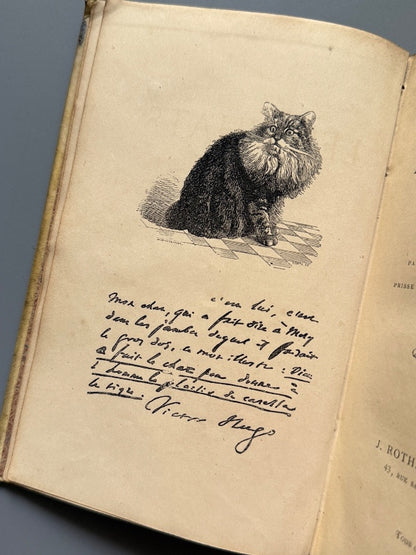 c'est lui, c'est
Mon chat, qui a fait dire à Méry
dans les jambes duquel il faisait
le gros dos, ce mot illustre : Dieu
a fait le chat pour donner à
l'homme le plaisir de caresser
le tigre.
Victor Hugo
PA
PRISSE
J. ROTH
43, RUE SA